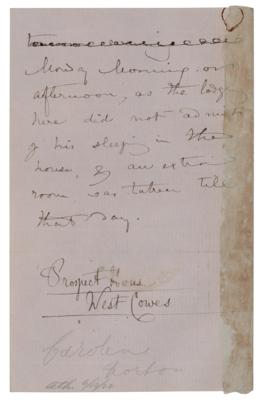 Monday Morning or
afternoon, as the lodg
here did not admit
of his sleeping in the
house, & an extra
room was taken till
that day.
Prospect House
West Cowes
Caroline
Norton